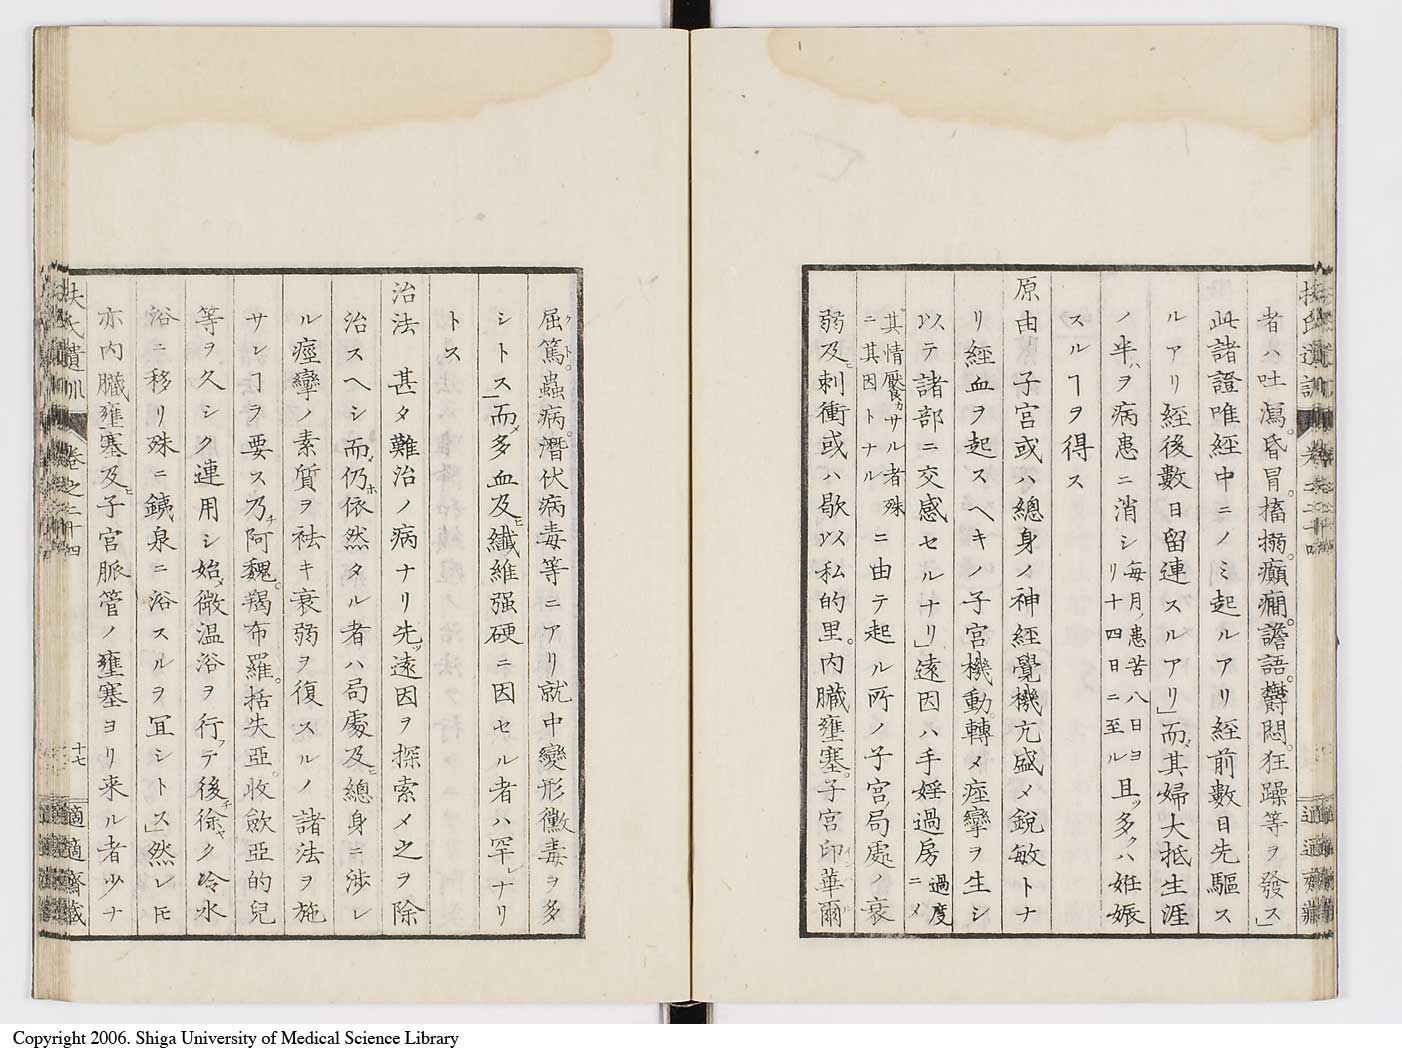 者ハ吐瀉。昏冒。搐搦。癲癇。譫語。欝悶。狂躁等ヲ發ス」
此諸證唯經中ニノミ起ルアリ經前數日先驅ス
ルアリ經後數日留連スルアリ」而メ其婦大抵生涯
ノ半ハヲ病患ニ消シ毎月ノ患苦八日ヨリ十四日ニ至ル且ツ多クハ姙娠
スルヿヲ得ス
原由 子宮或ハ總身ノ神經覺機亢盛メ鋭敏トナ
リ經血ヲ起スヘキノ子宮機動。轉メ痙攣ヲ生シ
以テ諸部ニ交感セルナリ」遠因ハ手婬過房過度ニメ
其情厭食カサル者殊ニ其因トナルニ由テ起ル所ノ子宮局處ノ衰
弱及ヒ刺衝或ハ歇以私的里。内臓壅塞。子宮印華爾
屈篤。蟲病。潛伏病毒等ニアリ就中變形黴毒ヲ多
シトス」而メ多血及ヒ纖維强硬ニ因セル者ハ罕レナリ
トス
治法 甚タ難治ノ病ナリ先ツ遠因ヲ探索メ之ヲ除
治スヘシ而メ仍ホ依然タル者ハ局處及ヒ總身ニ渉レ
ル痙攣ノ素質ヲ祛キ衰弱ヲ復スルノ諸法ヲ施
サレヿヲ要ス乃チ阿魏。羯布羅。括失亞。收歛亞的兒
等ヲ久シク連用シ始メ微温浴ヲ行フテ後チ徐ヤク冷水
浴ニ移リ殊ニ鐵泉ニ浴スルヲ冝シトス」然レモ
亦内臓壅塞及ヒ子宮脈管ノ壅塞ヨリ来ル者少ナ
扶氏遺訓 卷之二十四
十七
適適齋藏
Copyright 2006. Shiga University of Medical Science Library